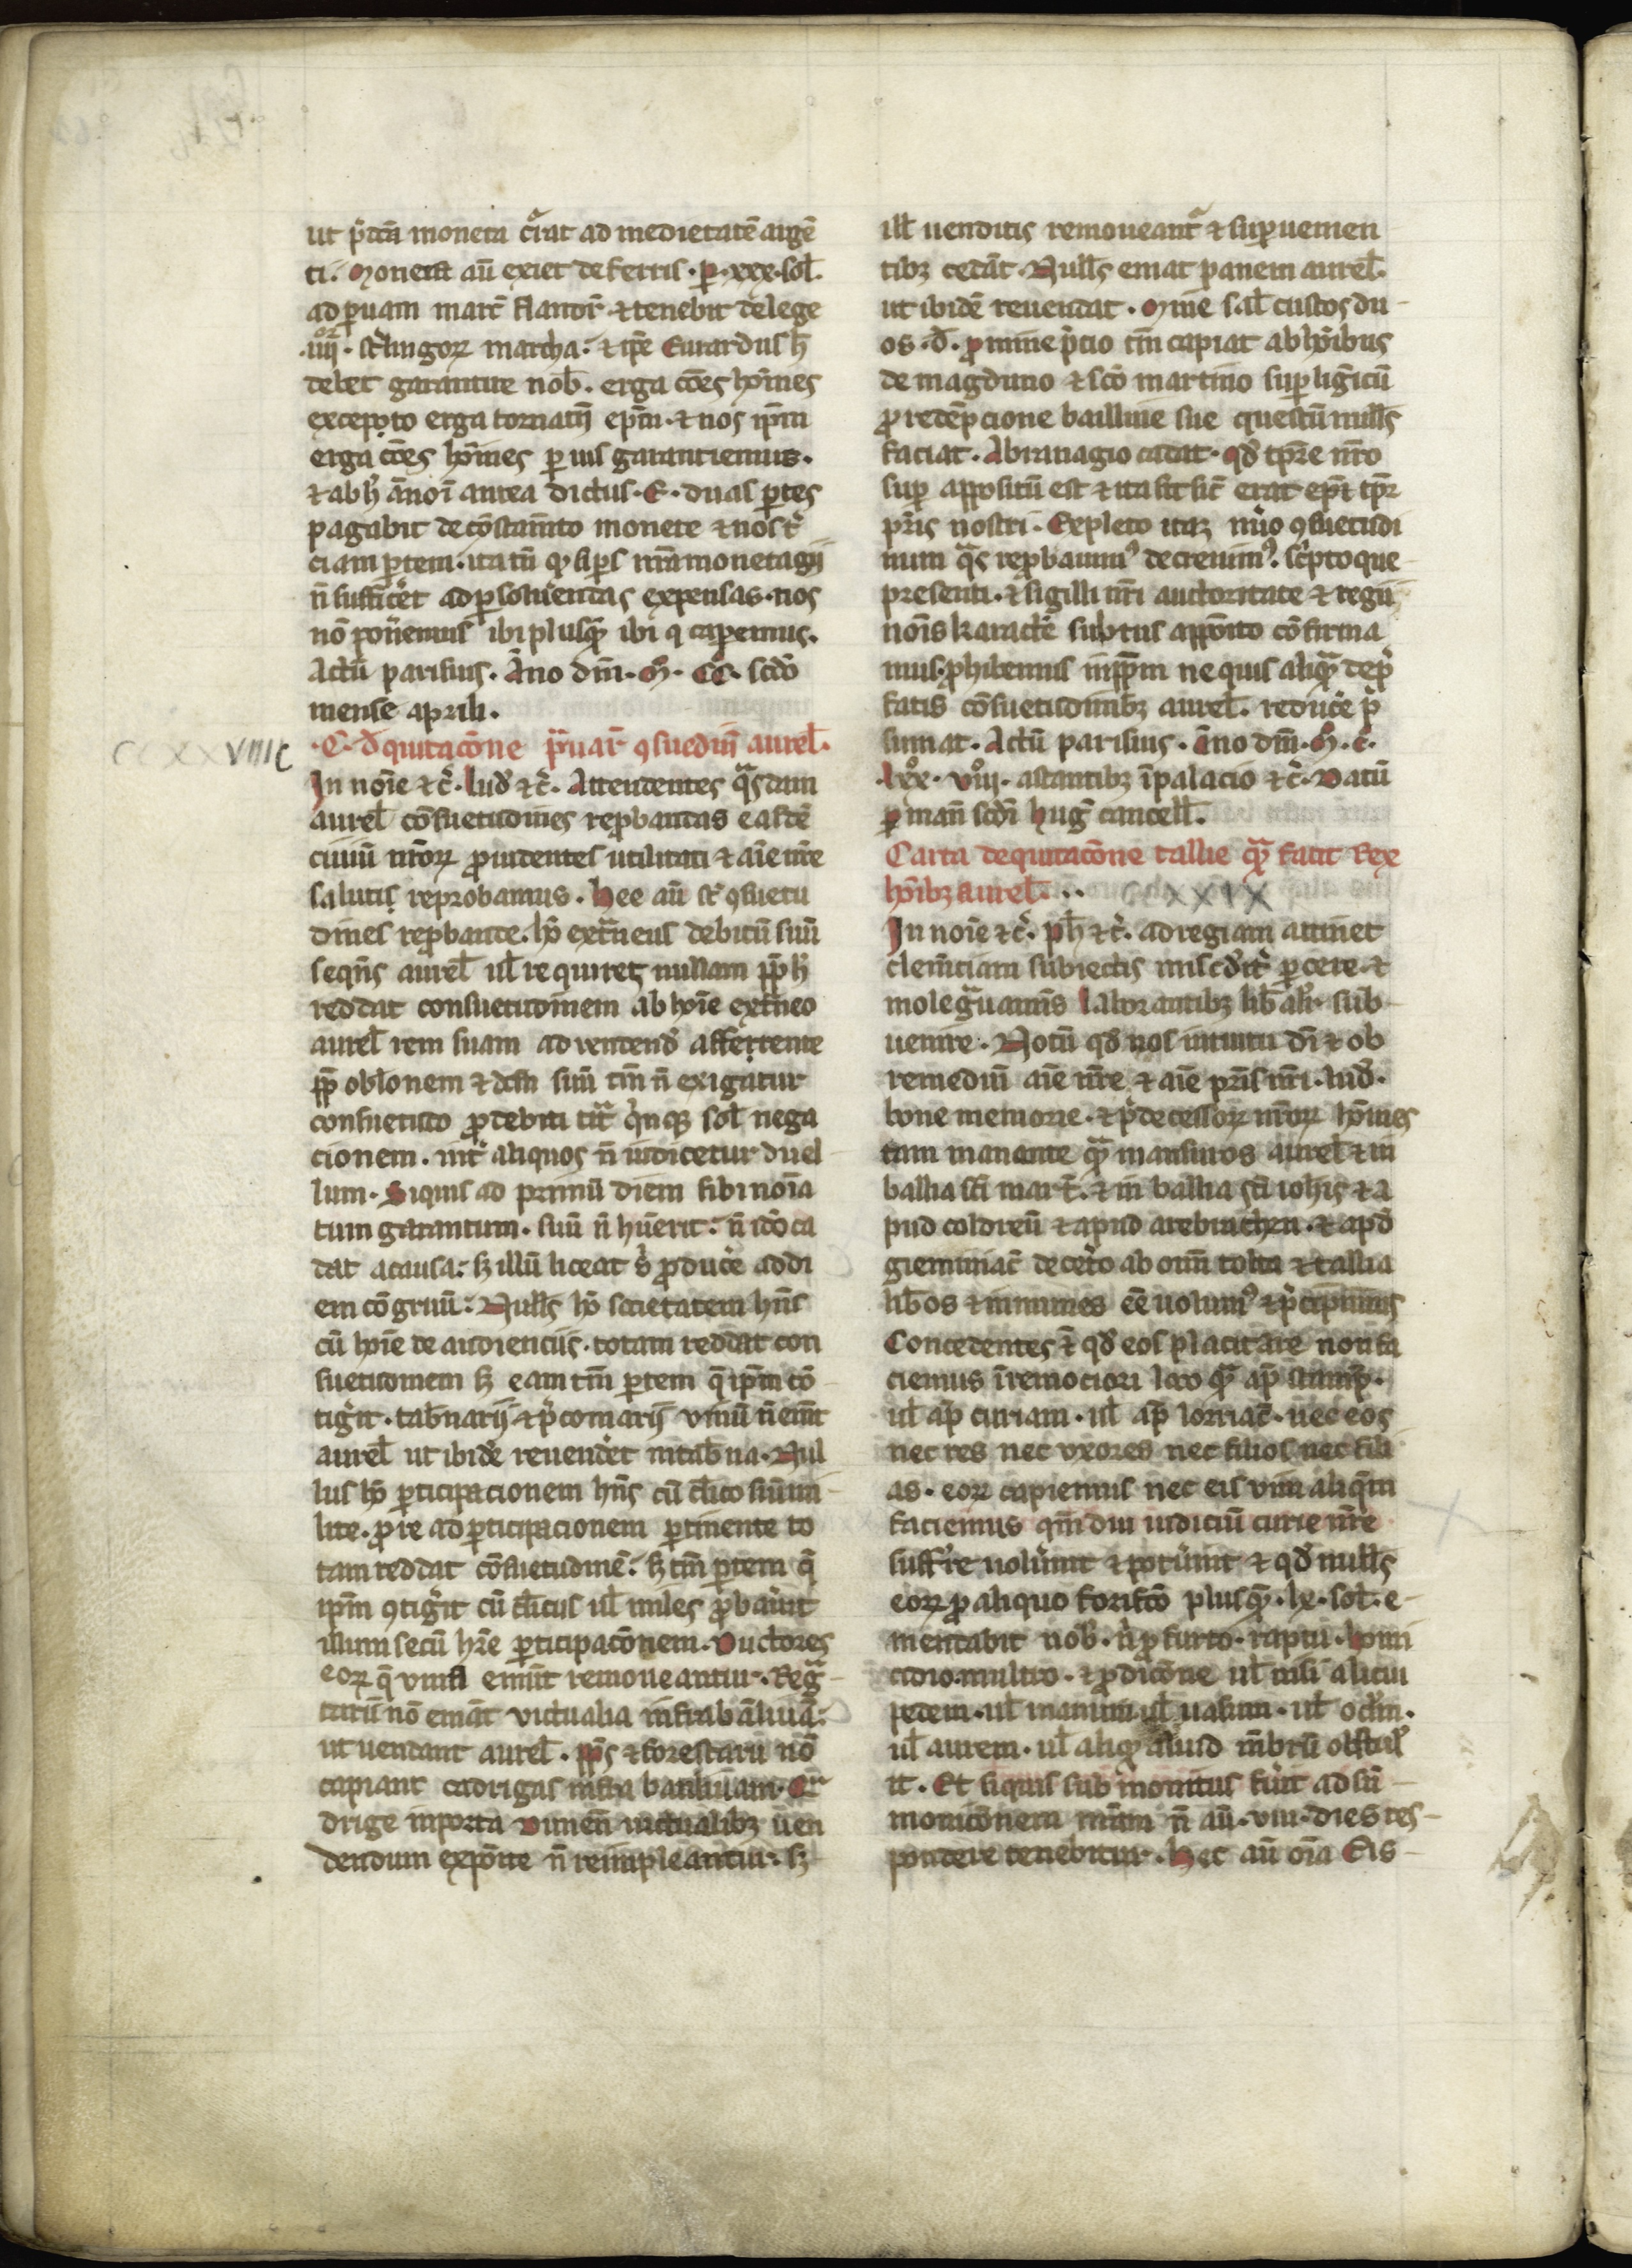 ut p̓dc̄a moneta c̓rat ad medietatē argē
ti. Moneta au̅ exiet de ferris · ꝑ · xxx · sol̅.
ad ꝑuam marc̄ flandr̄ ⁊ tenebit de lege
.iiij. st̓lingoꝝ marcha: ⁊ ip̄e Eurardus h̅
debet garantire nob̅. erga oēs ho̅ies
excepto erga tornacn̄ ep̄m · ⁊ nos ip̄m
erga oēs ho̅ies ꝑ ius garantiemus.
⁊ ab h̓ ān̄o ī antea dictus · E · duas ꝑtes
pagabit de cōstam̄to monete ⁊ nos t̓
ciam ꝑtem · ita tn̄ ꝙ si ꝑs nr̄a monetagij
n̄ suffic̓et ad ꝑsoluendas expensas · nos
nō pon̓emus ibi plusꝙ̄ ibi ꝗ caperemus.
Actū parisius. Āno dn̄i · M̊ · CC̊ · scdo̅
mense aprili.
CCXXVIIIC
·C· d̅ quitaco̅ne p̓uar̄ ꝯsuedin̄ aurel̅.
In no̅ie ⁊c̓. lud̓ ⁊c̓. Attendentes qᷓsdam
aurel̅ cōsuetudines reꝓbandas easdē
ciuiū nr̄oꝝ ꝓuidentes utilitati ⁊ aīe nr̄e
salutis reprobamus. Hee au̅ st̓ ꝯsuetu
dines reꝓbante. ho̅ extᷓneus debitū suū
seqn̄s aurel̅ ul̅ requirens nullam ꝓp̄ h̓
reddat consuetudinem ab ho̅ie extᷓneo
aurel̅ rem suam ad vendend̓ afferente
ꝓp̄ obl̅onem ⁊ dc̄m suū tm̄ n̄ exigatur
consuetudo ꝓ debiti tr̄ᷓ q̓nqꝫ sol̅ nega
cionem. int̓ aliquos n̄ iudicetur duel
lum. Siquis ad primū diem sibi no̅ia
tum garantum. suū n̄ hūerit: n̄ ido̅ ca
dat a causa: sꝫ illū liceat s̓ ꝓduc̓e ad di
em cōgruū: Null̅s ho̅ societatem hn̄s
cū ho̅ie de audienciis. totam reddat con
suetudinem sꝫ eam tm̄ ꝑtem q̄ ip̄m cō
tig̓it. tab̅narij ⁊ p̓conarij vinū n̄ emāt
aurel̅ ut ibidē reuendēt in tab̅na. Nul
lus ho̅ ꝑticipacionem hn̄s cū cl̅ico siū mi
lite. ꝓ re ad ꝑticipacionem ꝑtinente to
tam reddat cōsuetudinē: sꝫ tm̄ ꝑtem q̄
ip̄m ꝯtig̓it cū cl̅icus ul̅ miles ꝓbau̓it
illum secū hr̄e ꝑticipaco̅nem. Ductores
eoꝝ q̄ vina emūt remoueantur. Regᷓ
tarii nō emāt victualia infra bāliuā:
ut uendant aurel̅. ꝓp̄s ⁊ forestarii nō
capiant cadrigas infra banliuam. Cᷓ
drige in porta Dunen̄ victualibꝫ uen
dendum expōite n̄ reimpleantur: sꝫ
ill̅ uenditis remoueantᷓ ⁊ suꝑuenien
tibꝫ cedāt. Null̅s emat panem aurel̅.
ut ibidē reuendat. Mine sal̅ custos du
os · d̅. ꝓ mine p̓cio tm̄ capiat ab ho̅ibus
de magduno ⁊ sc̄o martino suꝑ ligericū
ꝓ redēpcione bailliuie sue questū null̅s
faciat. Abianagio cadat. qd̓ tꝑre nr̄o
suꝑ appositū est ⁊ ita sit sic̄ erat ep̄i tꝑr̄
pr̄is nostri. Expleto itaꝫ nūo ꝯsuetudi
num qᷓs reꝓbauim᷒ decreuim᷒. sc̓ptoque
presenti. ⁊ sigilli nr̄i auctoritate ⁊ regii
no̅is karactē subtus appo̅ito cōfirma
mus. ꝓhibemus inppm̄ ne quis aliqᷓ de p̓
fatis cōsuetudinibꝫ aurel̅. reduc̓e p̓
sumat. Actū parisius. Āno dn̄i · M̊ · C̊.
.lxx̊. viij̊. astantibꝫ ī palacio ⁊c̓. Datū
ꝑ man̄ scd̓i hug̓ cancell̅.
Carta de quitaco̅ne tallie qᷓ facit Rex
ho̅ibꝫ aurel̅...
CCXXIX
In no̅ie ⁊c̓. ph̅ ⁊c̓. ad regiam attinet
clem̄ciam subiectis mis̄cdit̓ ꝑcere. ⁊
mole gᷓuaminis laborantibꝫ lib̅al̓r sub
uenire. Notū qd̓ nos intuitu dī ⁊ ob
remediū aīe nr̄e ⁊ aīe pr̄is nr̄i. lud̓.
bone memorie. ⁊ p̓decessoꝝ nr̄oꝝ ho̅ines
tam manante qᷓ mansuros aurel̅ ⁊ in
ballia sc̄i mart̄. ⁊ in ballia sc̄i ioh̅is ⁊ a
pud coldreū ⁊ apud arebrachen. ⁊ apd̓
gieminiac̄ de cet̓o ab om̄i tolta ⁊ tallia
lib̅os ⁊ inmunes eē uolum᷒ ⁊ p̓cipimus
Concedentes ⁊̄ qd̓ eos placitare non fa
ciemus ī remociori loco qᷓ ap̄ stamp̄.
ul̅ ap̄ curiam. ul̅ ap̄ lorriac̄. nec eos
nec res nec vxores nec filios nec fili
as. eoꝝ capiemus nec eis vim aliq̄m
faciemus qm̄ diu iudiciū curie nr̄e
suff̓re uolu̓int ⁊ potu̓int ⁊ qd̓ null̅s
eoꝝ ꝓ aliquo forifcō plusꝙ̄. lx. sol̅. e
mendabit nob̅. n̓ ꝓ furto. raptu. homi
cidio. multro. ⁊ ꝓdico̅ne ul̅ nisi alicui
pedem. ul̅ manum ul̅ nasum. ul̅ oc̅lm.
ul̅ aurem. ul̅ aliqᷓ aliud m̄brū obstul̓
it. Et siquis submonitus fu̓it ad sū
monico̅nem nr̄am n̄ au̅. viii. dies res
pondere tenebitur. Hec au̅ om̅ia Eis